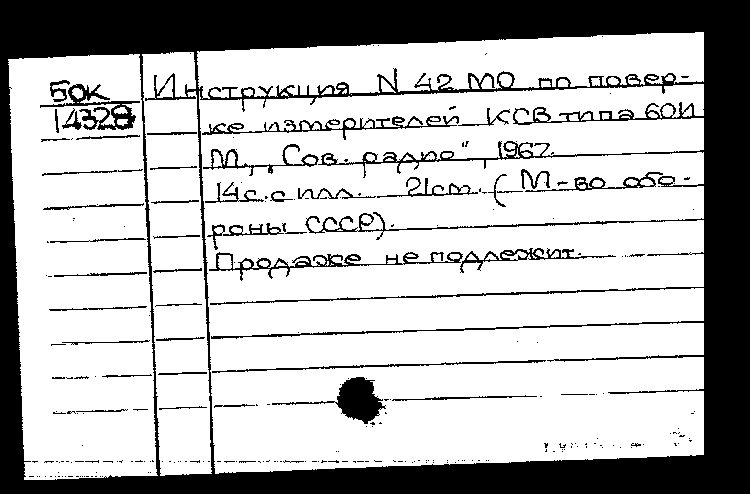 Бок
14328
Инструкция N 42 МО по повер-
ке измерителей КСВ типа 60И
М., „Сов. радио", 1967.
14с. с илл. 21см. (М-во обо-
роны СССР).
Продаже не подлежит.